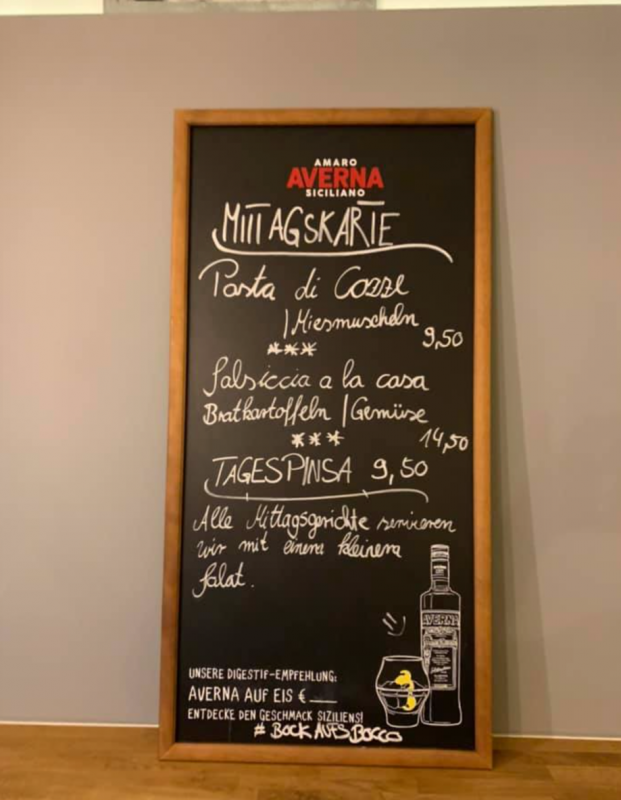 AMARO
AVERNA
SICILIANO
MITTAGSKARTE
Pasta di Cozze
| Miesmuscheln
9,50
***
Salsiccia a la casa
Bratkartoffeln | Gemüse
*** 14,50
TAGESPINSA 9,50
Alle Mittagsgerichte servieren
wir mit einem kleinem
Salat.
AVERNA
UNSERE DIGESTIF-EMPFEHLUNG:
AVERNA AUF EIS € ____
ENTDECKE DEN GESCHMACK SIZILIENS!
# BOCK AUFS BOCCO